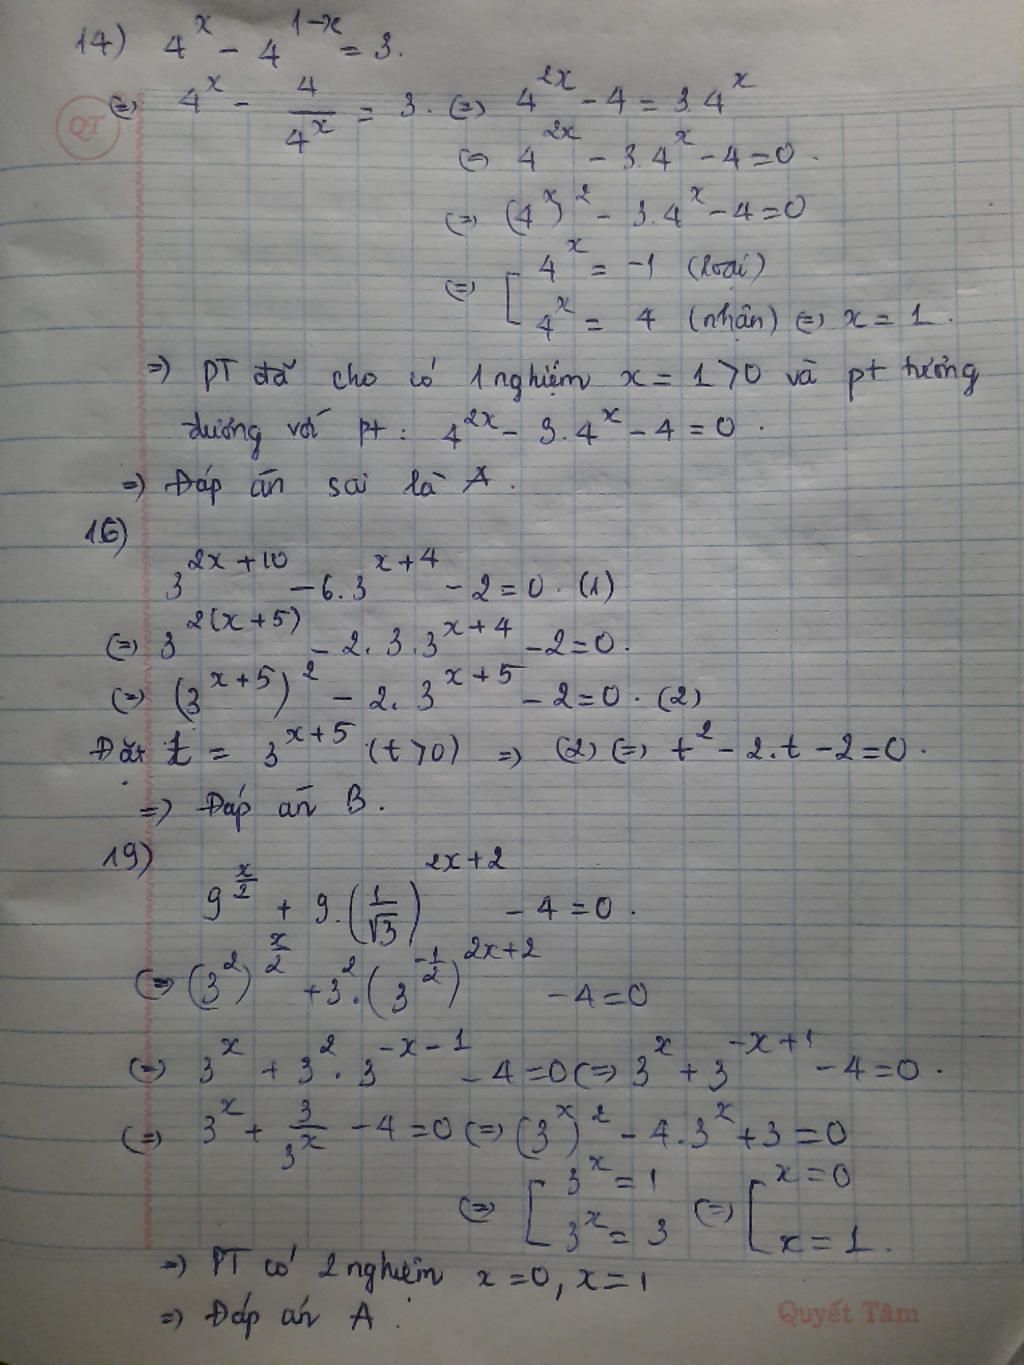 14) 4^x - 4^{1-x} = 3.
QT
(=) 4^x - 4/4^x = 3. (=) 4^{2x} - 4 = 3.4^x
(=) 4^{2x} - 3.4^x - 4 = 0.
(=) (4^x)^2 - 3.4^x - 4 = 0
(=) [ 4^x = -1 (loại)
4^x = 4 (nhận) (=) x = 1.
=) PT đã cho có 1 nghiệm x = 1 > 0 và pt tương
đương với pt : 4^{2x} - 3.4^x - 4 = 0.
=) Đáp án sai là A.
16)
3^{2x+10} - 6.3^{x+4} - 2 = 0. (1)
(=) 3^{2(x+5)} - 2.3.3^{x+4} - 2 = 0.
(=) (3^{x+5})^2 - 2.3^{x+5} - 2 = 0. (2)
Đặt t = 3^{x+5} (t > 0) =) (2) (=) t^2 - 2.t - 2 = 0.
=) Đáp án B.
19)
9^{x/2} + 9.(1/√3)^{2x+2} - 4 = 0.
(=) (3^2)^{x/2} + 3^2.(3^{-1/2})^{2x+2} - 4 = 0
(=) 3^x + 3^2.3^{-x-1} - 4 = 0 (=) 3^x + 3^{-x+1} - 4 = 0.
(=) 3^x + 3/3^x - 4 = 0 (=) (3^x)^2 - 4.3^x + 3 = 0
(=) [ 3^x = 1 (=) [ x = 0
3^x = 3 x = 1.
=) PT có 2 nghiệm x = 0, x = 1
=) Đáp án A.
Quyết Tâm